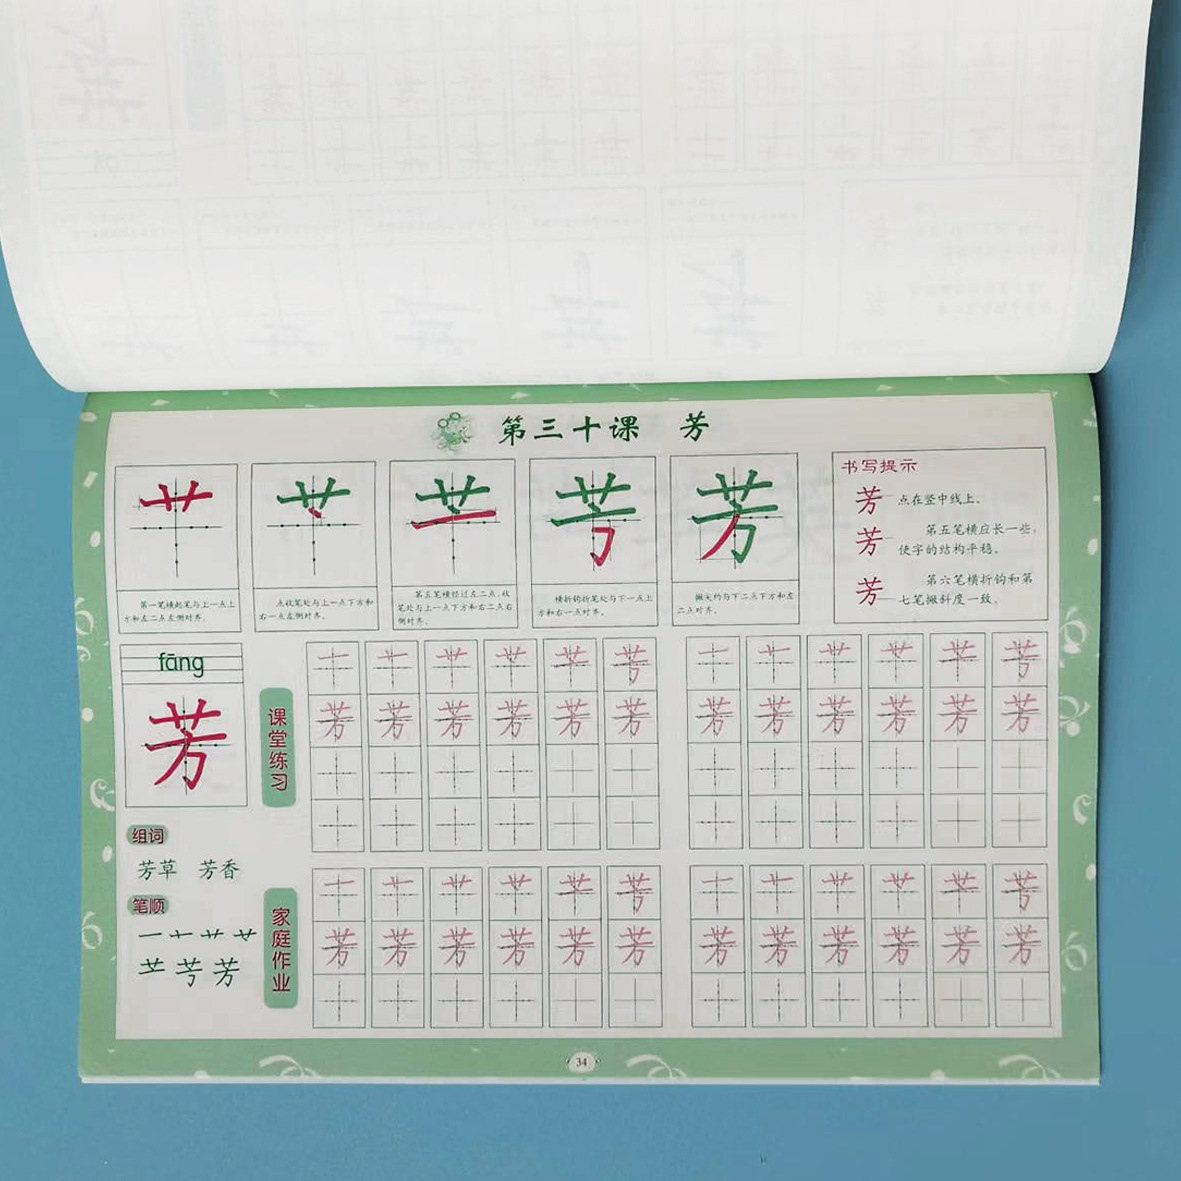 第三十课 芳
第一笔横起笔与上一点上
方和左二点左侧对齐。
点收笔处与上一点下方和
右一点左侧对齐。
第五笔横经过左二点,收
笔处与上一点下方和右二点右
侧对齐。
横折钩折笔处与下一点上
方和右一点对齐。
撇尖约与下二点下方和左
二点对齐。
书写提示
芳 点在竖中线上。
芳 第五笔横应长一些,
使字的结构平稳。
芳 第六笔横折钩和第
七笔撇斜度一致。
fāng
芳
课堂练习
芳 芳 芳 芳 芳 芳 芳 芳 芳 芳 芳 芳
组词
芳草 芳香
笔顺
家庭作业
芳 芳 芳 芳 芳 芳 芳 芳 芳 芳 芳 芳
34